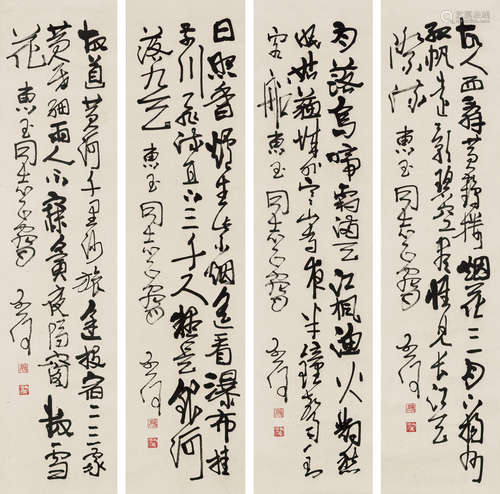 故人西辞黄鹤楼烟花三月下扬州
孤帆远影碧空尽惟见长江天
际流 惠玉同志
月落乌啼霜满天江枫渔火对愁
眠姑苏城外寒山寺夜半钟声到
客船 惠玉同志
日照香炉生紫烟遥看瀑布挂
前川飞流直下三千尺疑是银河
落九天 惠玉同志
故道黄河千里沙旅途投宿二三家
黄昏细雨人不寐夤夜隔窗雪
花 惠玉同志